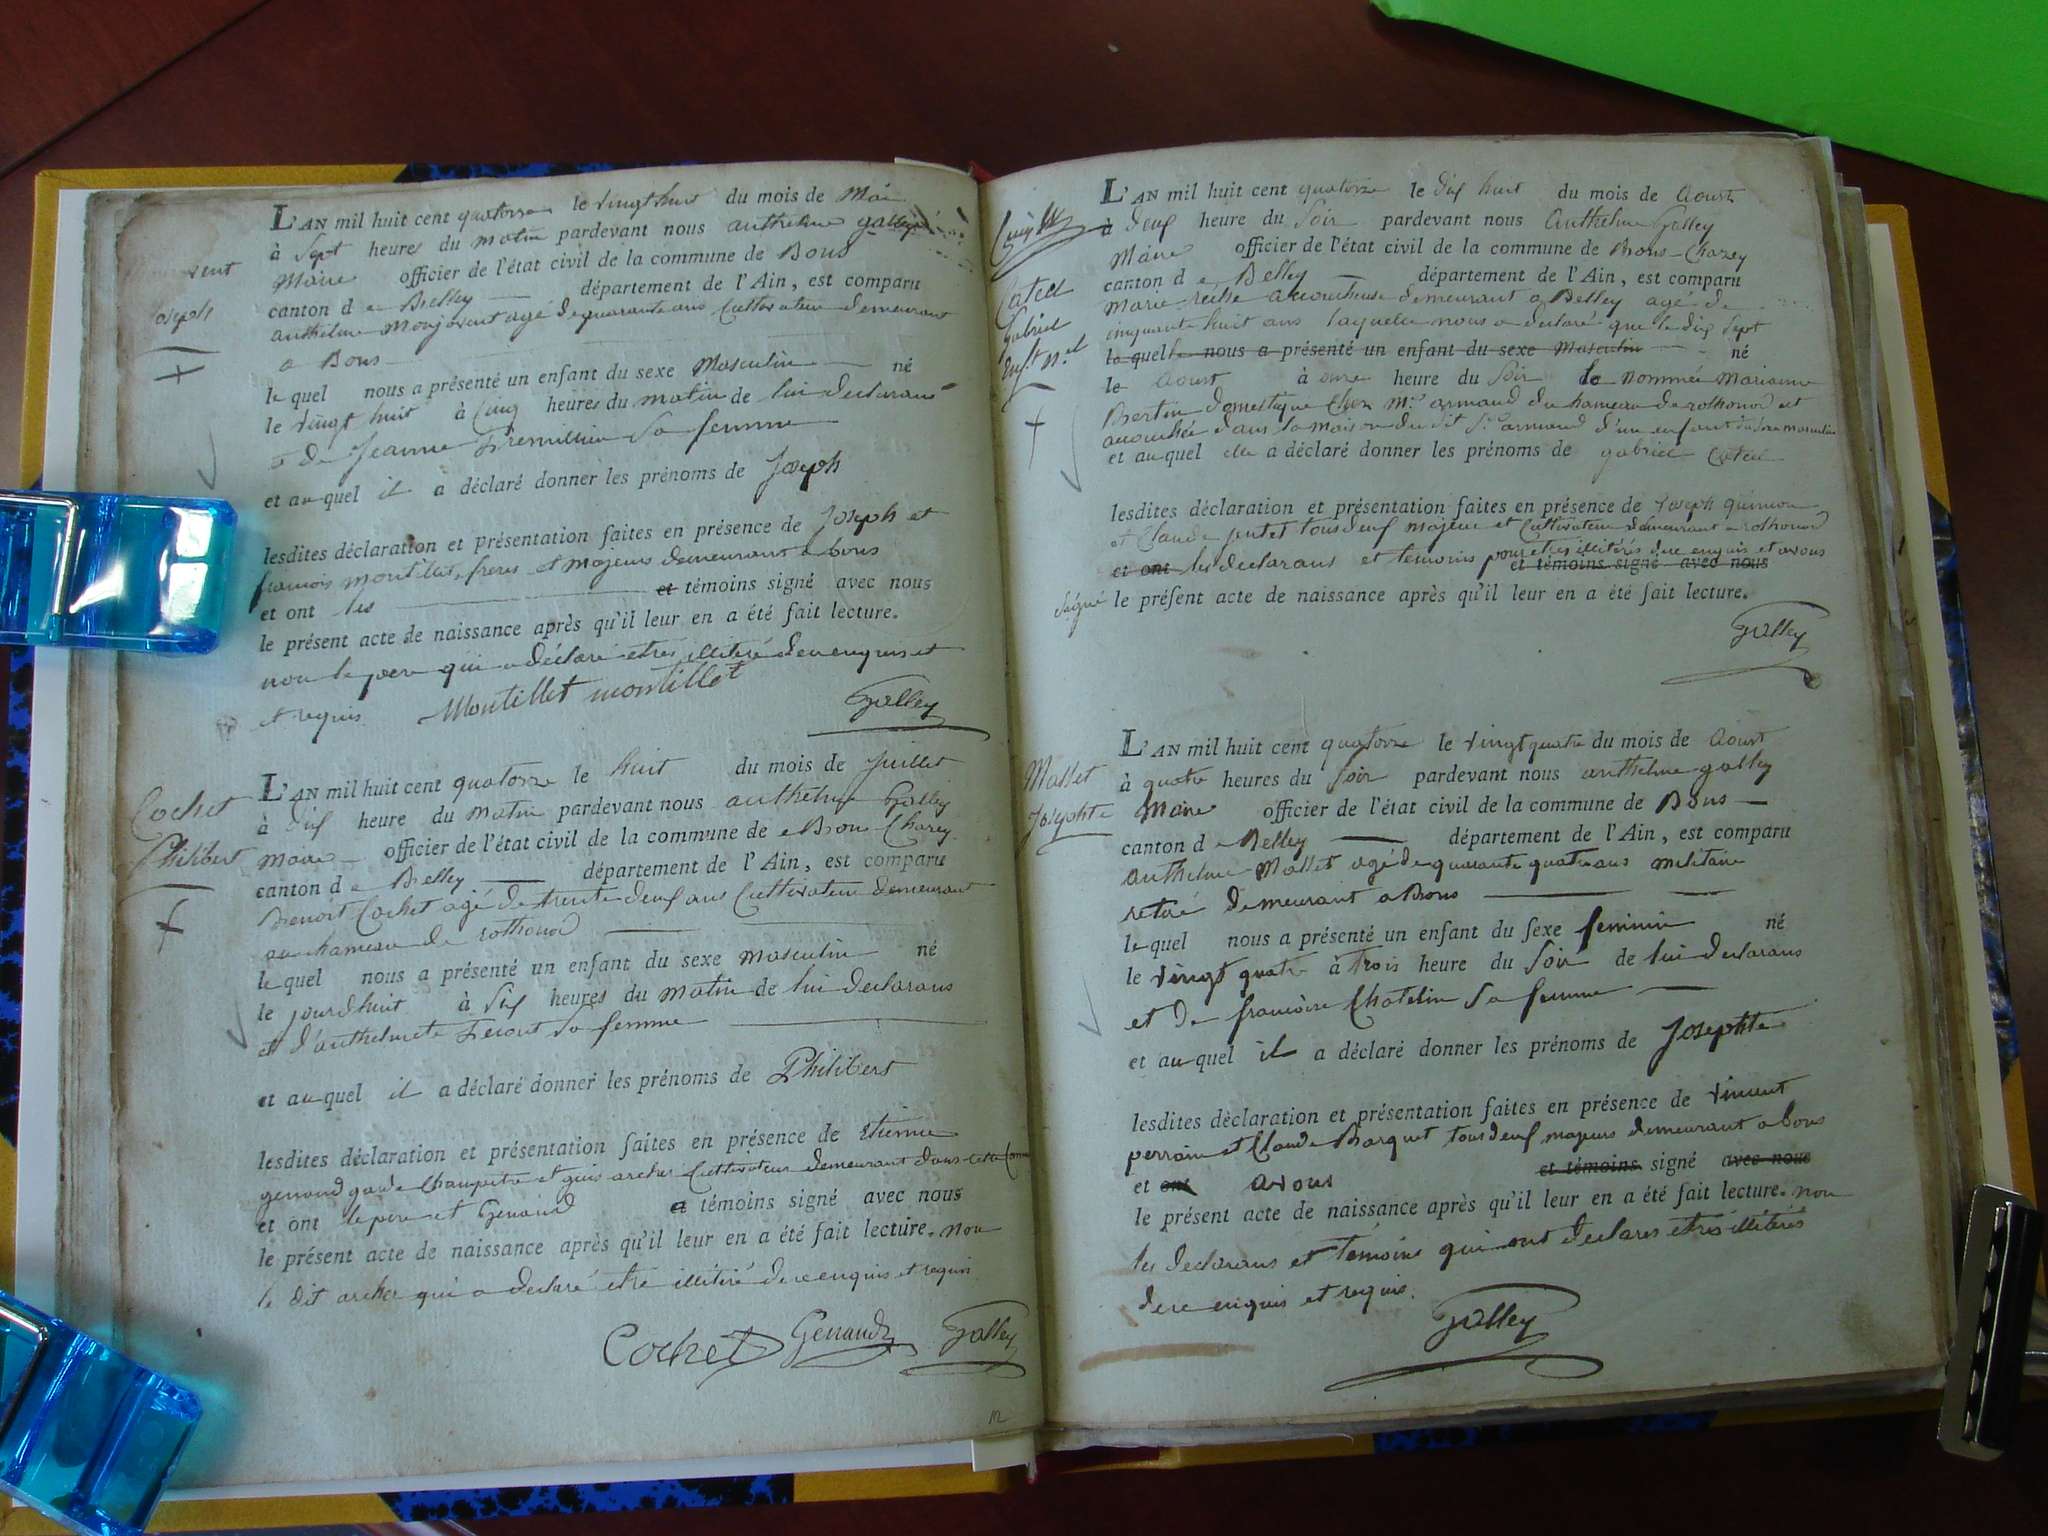 L'AN mil huit cent quatorze le vingt huit du mois de Mai
à sept heures du matin pardevant nous anthelme galley
Maire officier de l'état civil de la commune de Bons
canton de Belley département de l'Ain, est comparu
anthelme Monjovent agé de quarante ans Cultivateur demeurant
a Bons
le quel nous a présenté un enfant du sexe Masculin né
le vingt huit à Cinq heures du matin de lui declarant
et de Jeanne fremillion sa femme
et au quel il a déclaré donner les prénoms de Joseph
lesdites déclaration et présentation faites en présence de Joseph et
francois montillet, freres et majeurs demeurant a bons
et ont les et témoins signé avec nous
le présent acte de naissance après qu'il leur en a été fait lecture.
non le pere qui a déclaré etres illitéré de ce enquis et
et requis Montillet montillet Galley
vent
Joseph
Cochet
Philibert
L'AN mil huit cent quatorze le huit du mois de Juillet
à dix heure du matin pardevant nous anthelme Galley
Maire officier de l'état civil de la commune de Bons Chazey
canton de Belley département de l'Ain, est comparu
Benoit Cochet agé de trente deux ans Cultivateur demeurant
au hameau de rothonod
le quel nous a présenté un enfant du sexe masculin né
le jourdhuit à six heures du matin de lui declarans
et d'anthelmete sa femme
et au quel il a déclaré donner les prénoms de Philibert
lesdites déclaration et présentation faites en présence de etienne
genand garde Champetre et archer Cultivateur demeurant dans cette
et ont le pere et Genand et témoins signé avec nous
le présent acte de naissance après qu'il leur en a été fait lecture. non
le dit archer qui a declaré etre illitéré de ce enquis et requis
Cochet Genand Galley
12
Catel
Gabriel
enft nel
L'AN mil huit cent quatorze le dix huit du mois de Aoust
à deux heure du soir pardevant nous Anthelme Galley
Maire officier de l'état civil de la commune de Bons-Chazey
canton de Belley département de l'Ain, est comparu
Marie accoucheuse demeurant a Belley agé de
cinquante huit ans laquelle nous a declaré que le dix sept
la quelle nous a présenté un enfant du sexe Masculin né
le Aoust à onze heure du soir la nommée Marianne
Bertin domestique chez Mr armand du hameau de rothonod est
accouchée dans la maison du dit Sr armand d'un enfant du sexe masculin
et au quel elle a déclaré donner les prénoms de gabriel Catel
lesdites déclaration et présentation faites en présence de Joseph
et Claude tous deux majeur et Cultivateur demeurant a rothonod
et ont les declarans et temoins pour etres illitérés de ce enquis et avons
et témoins signé avec nous
signé le présent acte de naissance après qu'il leur en a été fait lecture.
Galley
Mallet
Josephte
L'AN mil huit cent quatorze le vingt quatre du mois de Aoust
à quatre heures du soir pardevant nous anthelme galley
Maire officier de l'état civil de la commune de Bons
canton de Belley département de l'Ain, est comparu
anthelme Mallet agé de quarante quatre ans militaire
retiré demeurant a Bons
le quel nous a présenté un enfant du sexe feminin né
le vingt quatre à trois heure du soir de lui declarans
et de francoise Chatelin sa femme
et au quel il a déclaré donner les prénoms de Josephte
lesdites déclaration et présentation faites en présence de vincent
perrain et Claude Barquet tous deux majeurs demeurant a bons
et ont avons et témoins signé avec nous
le présent acte de naissance après qu'il leur en a été fait lecture. non
les declarans et temoins qui ont declarés etres illitérés
de ce enquis et requis.
Galley